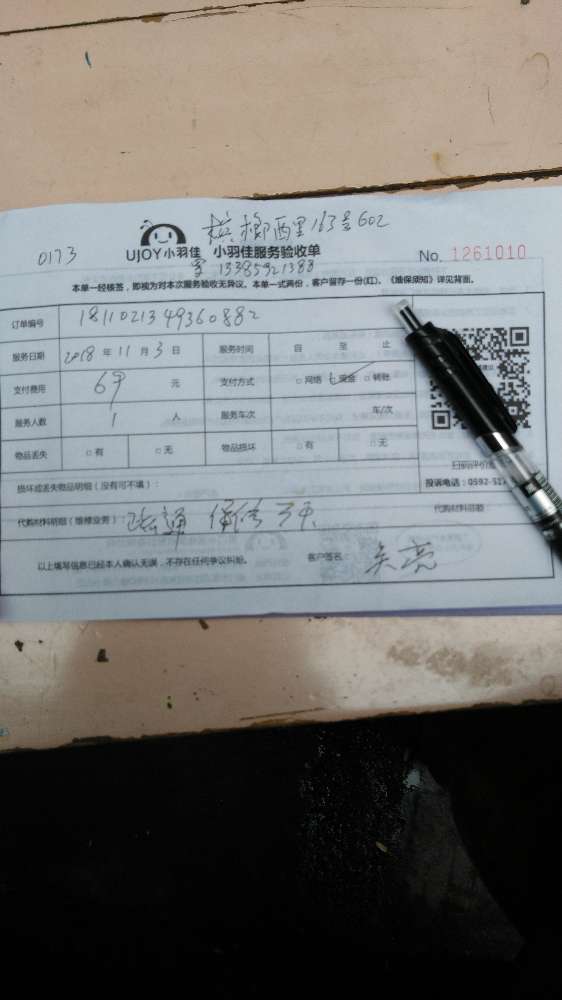 槟榔西里163号602
0173
UJOY小羽佳 小羽佳服务验收单 No. 1261010
13385921388
本单一经核签，即视为对本次服务验收无异议。本单一式两份，客户留存一份(红)。《维保须知》详见背面。
订单编号 1811021349360882
服务日期 2018 年 11 月 3 日 服务时间 自 至 止
支付费用 69 元 支付方式 □网络 □现金 □转账
服务人数 1 人 服务车次 车/次
物品丢失 □有 □无 物品损坏 □有 □无
扫码评价
损坏或丢失物品明细（没有可不填）：
投诉电话：0592-51
代购材料明细（维修业务）： 疏通 保修 3天 代购材料总额：
以上填写信息已经本人确认无误，不存在任何争议纠纷。 客户签名： 吴亮